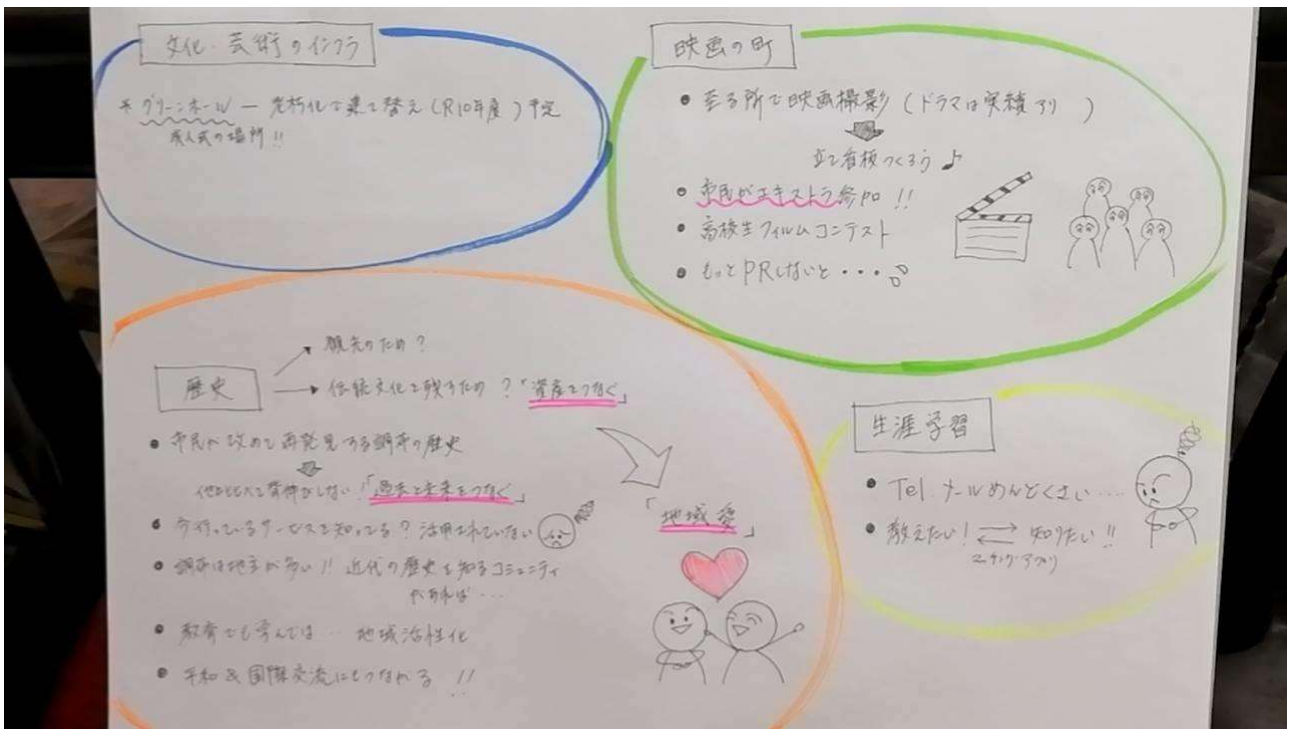 文化・芸術のインフラ
* グリーンホール ― 老朽化で建て替え(R10年度)予定
成人式の場所!!
映画の町
● 至る所で映画撮影(ドラマは実績アリ)
立て看板つくろう♪
● 市民がエキストラ参加!!
● 高校生フィルムコンテスト
● もっとPRしないと・・・
歴史
観光のため?
伝統文化を残すため?「資産をつなぐ」
● 市民が改めて再発見する調布の歴史
他と比べて背伸びしない!「過去と未来をつなぐ」
● 今行っているサービスを知ってる?活用されていない
● 調布は地主が多い!!近代の歴史を知るコミュニティ
があれば・・・
● 教育でも学んでは・・・地域活性化
● 平和&国際交流にもつながる!!
「地域愛」
生涯学習
● Tel.メールめんどくさい・・・
● 教えたい!⇄知りたい!!
マッチングアプリ